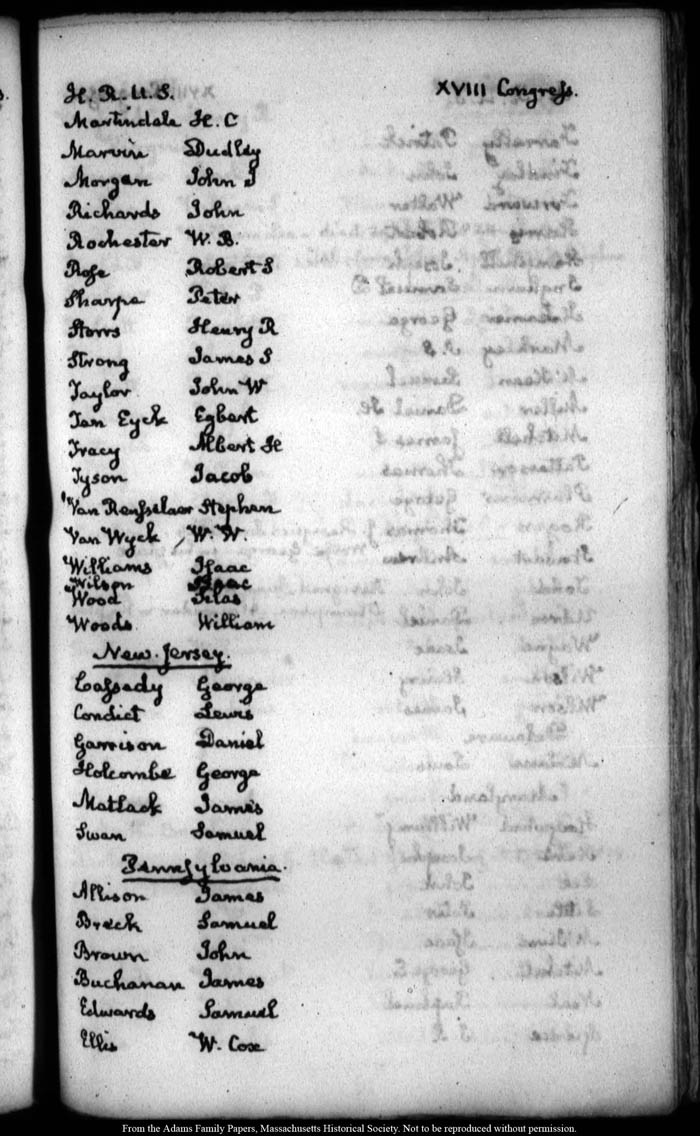 H. R. U. S. XVIII Congress.
Martindale H. C
Marvin Dudley
Morgan John J
Richards John
Rochester W. B.
Rose Robert S
Sharpe Peter
Storrs Henry R
Strong James S
Taylor John W
Ten Eyck Egbert
Tracy Albert H
Tyson Jacob
Van Rensselaer Stephen
Van Wyck W. W.
Williams Isaac
Wilson Isaac
Wood Silas
Woods William
New Jersey.
Cassedy George
Condict Lewis
Garrison Daniel
Holcombe George
Matlack James
Swan Samuel
Pennsylvania.
Allison James
Breck Samuel
Brown John
Buchanan James
Edwards Samuel
Ellis W. Cox
From the Adams Family Papers, Massachusetts Historical Society. Not to be reproduced without permission.